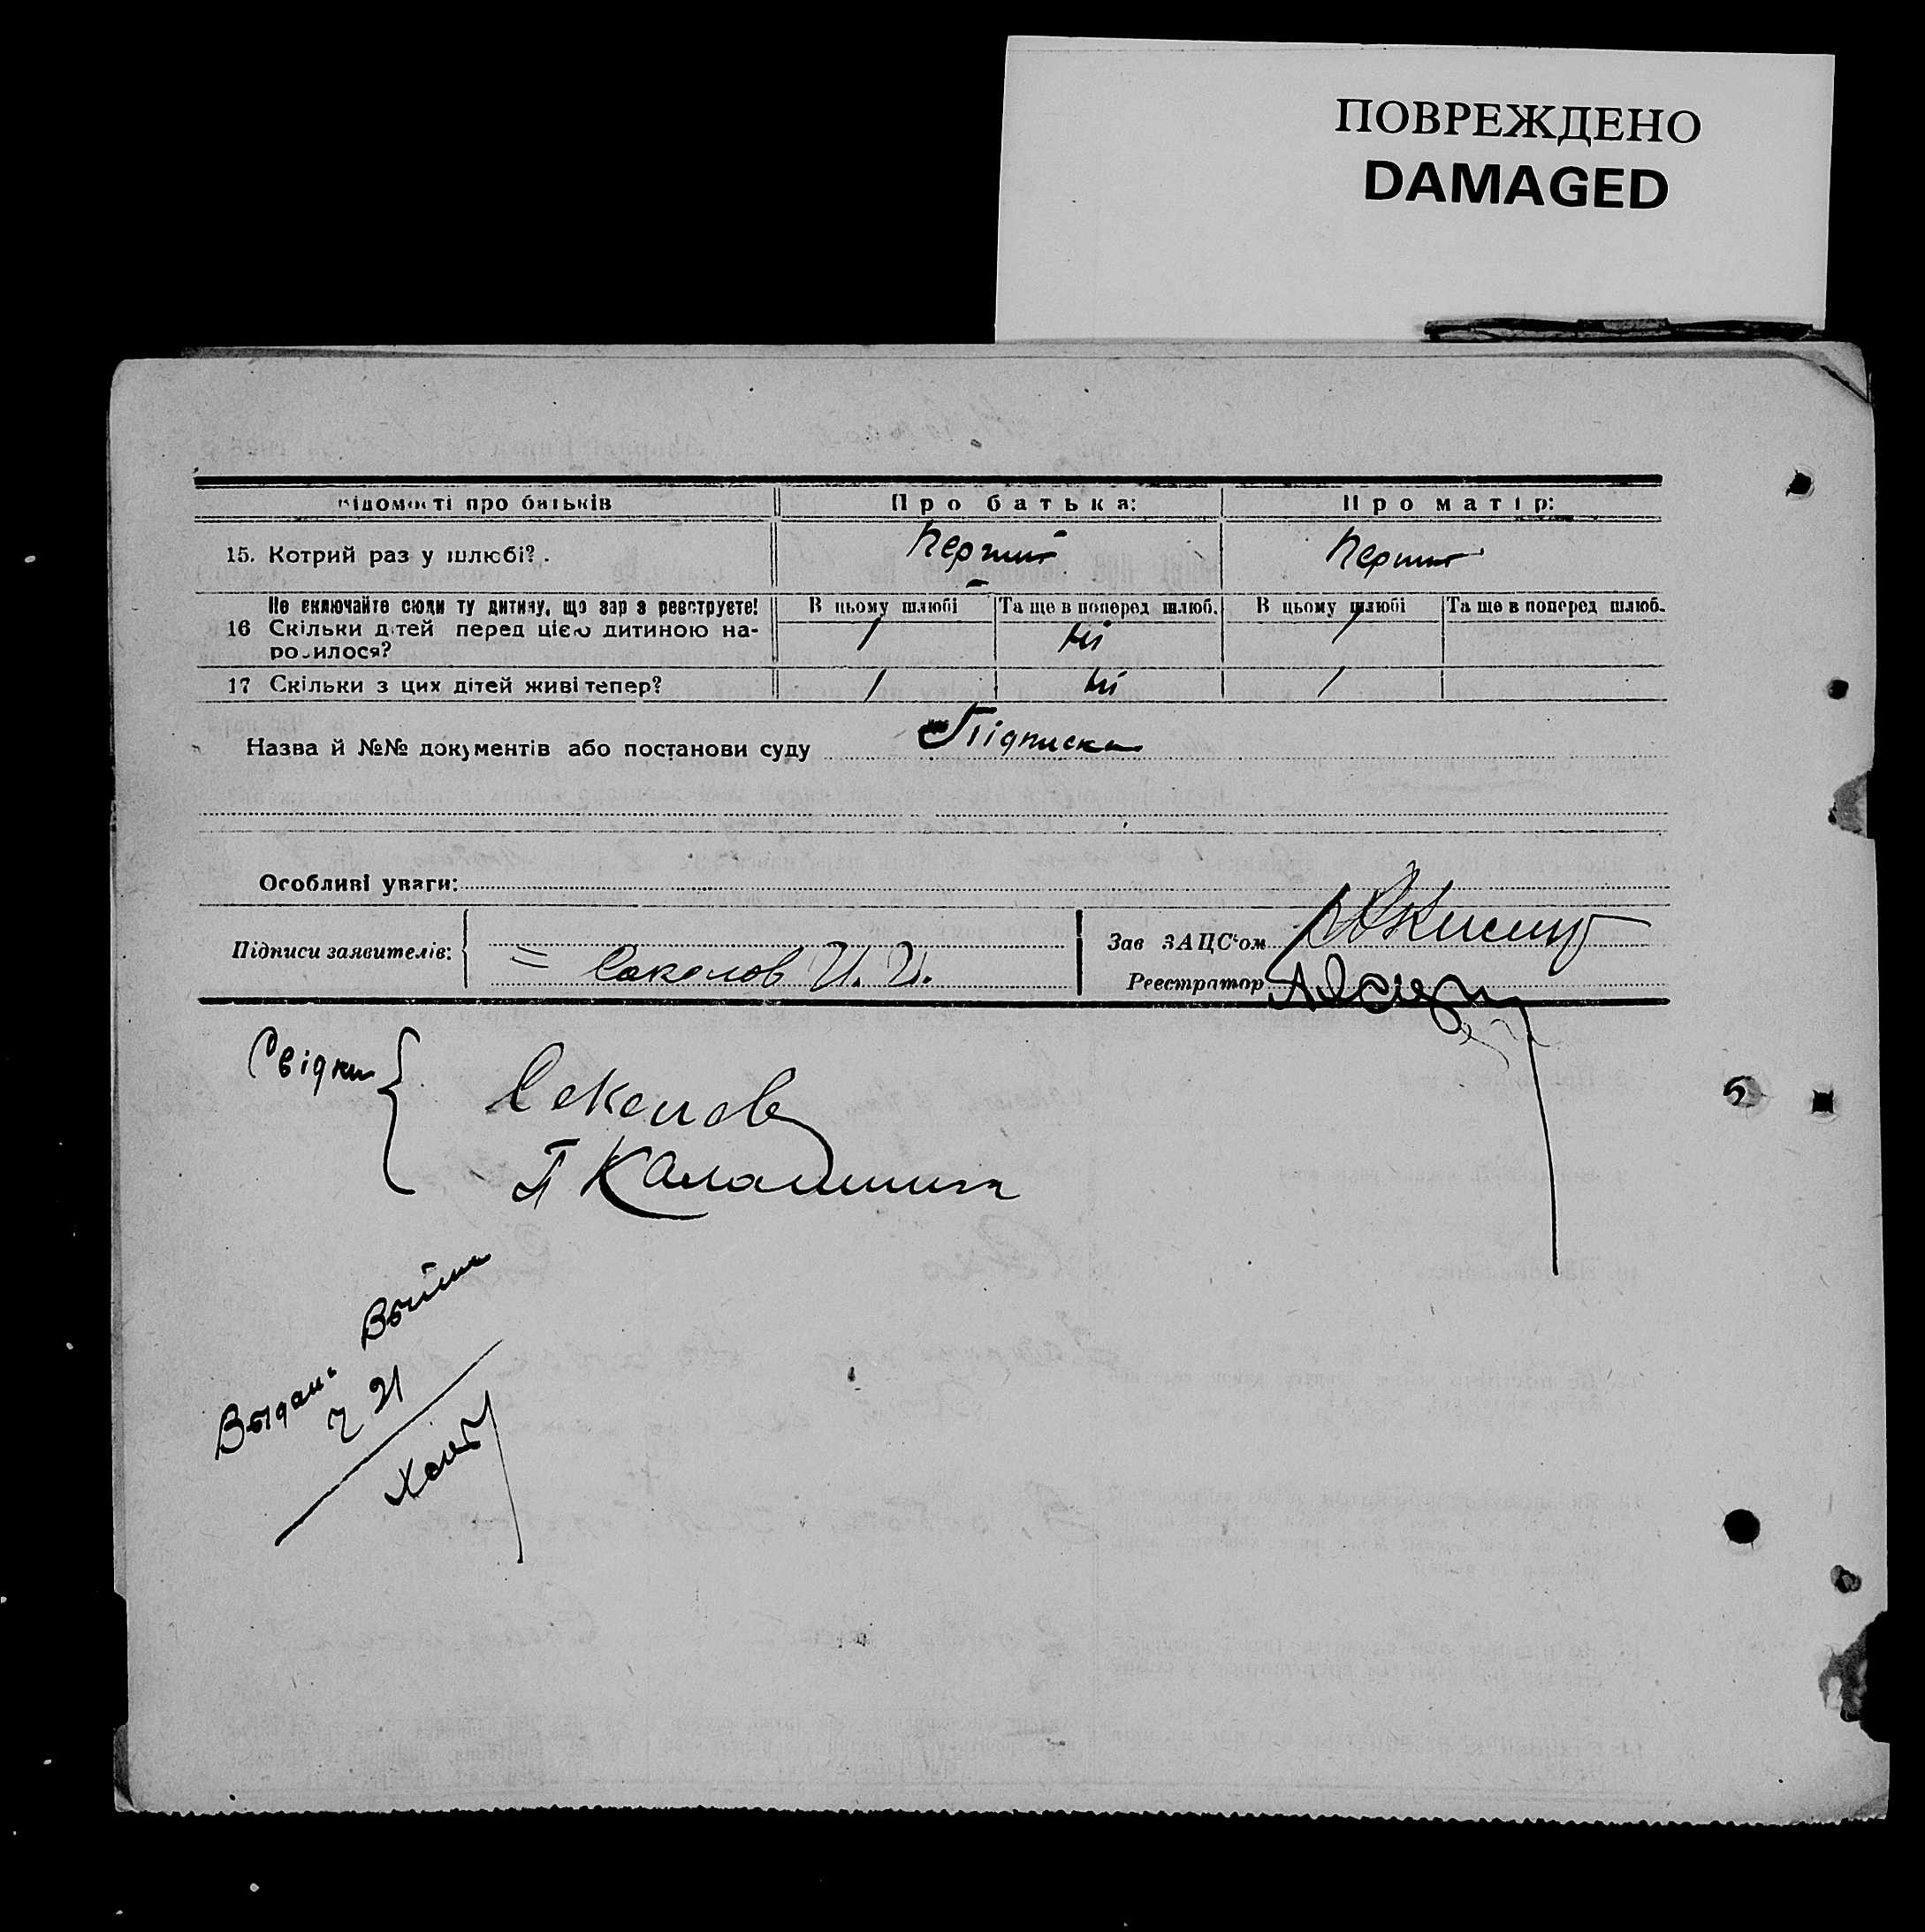 ПОВРЕЖДЕНО
DAMAGED
Відомості про батьків Про батька: Про матір:
15. Котрий раз у шлюбі? Перший Перший
Не включайте сюди ту дитину, що зараз реєструєте! В цьому шлюбі Та ще в поперед шлюб. В цьому шлюбі Та ще в поперед шлюб.
16 Скільки дітей перед цією дитиною на- 1 Ні 1
родилося?
17 Скільки з цих дітей живі тепер? 1 Ні 1
Назва й №№ документів або постанови суду Підписка
Особливі уваги:
Підписи заявителів: Соколов И. И. Зав ЗАЦС'ом
Реєстратор
Свідки
Соколов
П Калашник
Выдана Выпис
21
5